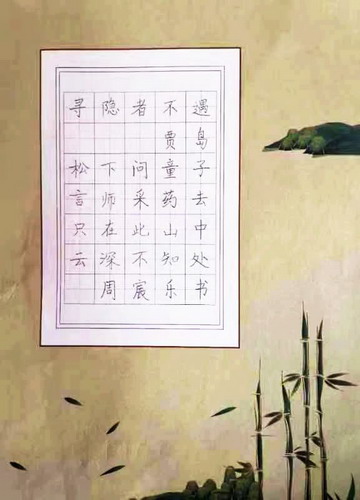 寻隐者不遇
贾岛
松下问童子
言师采药去
只在此山中
云深不知处
周宸乐书